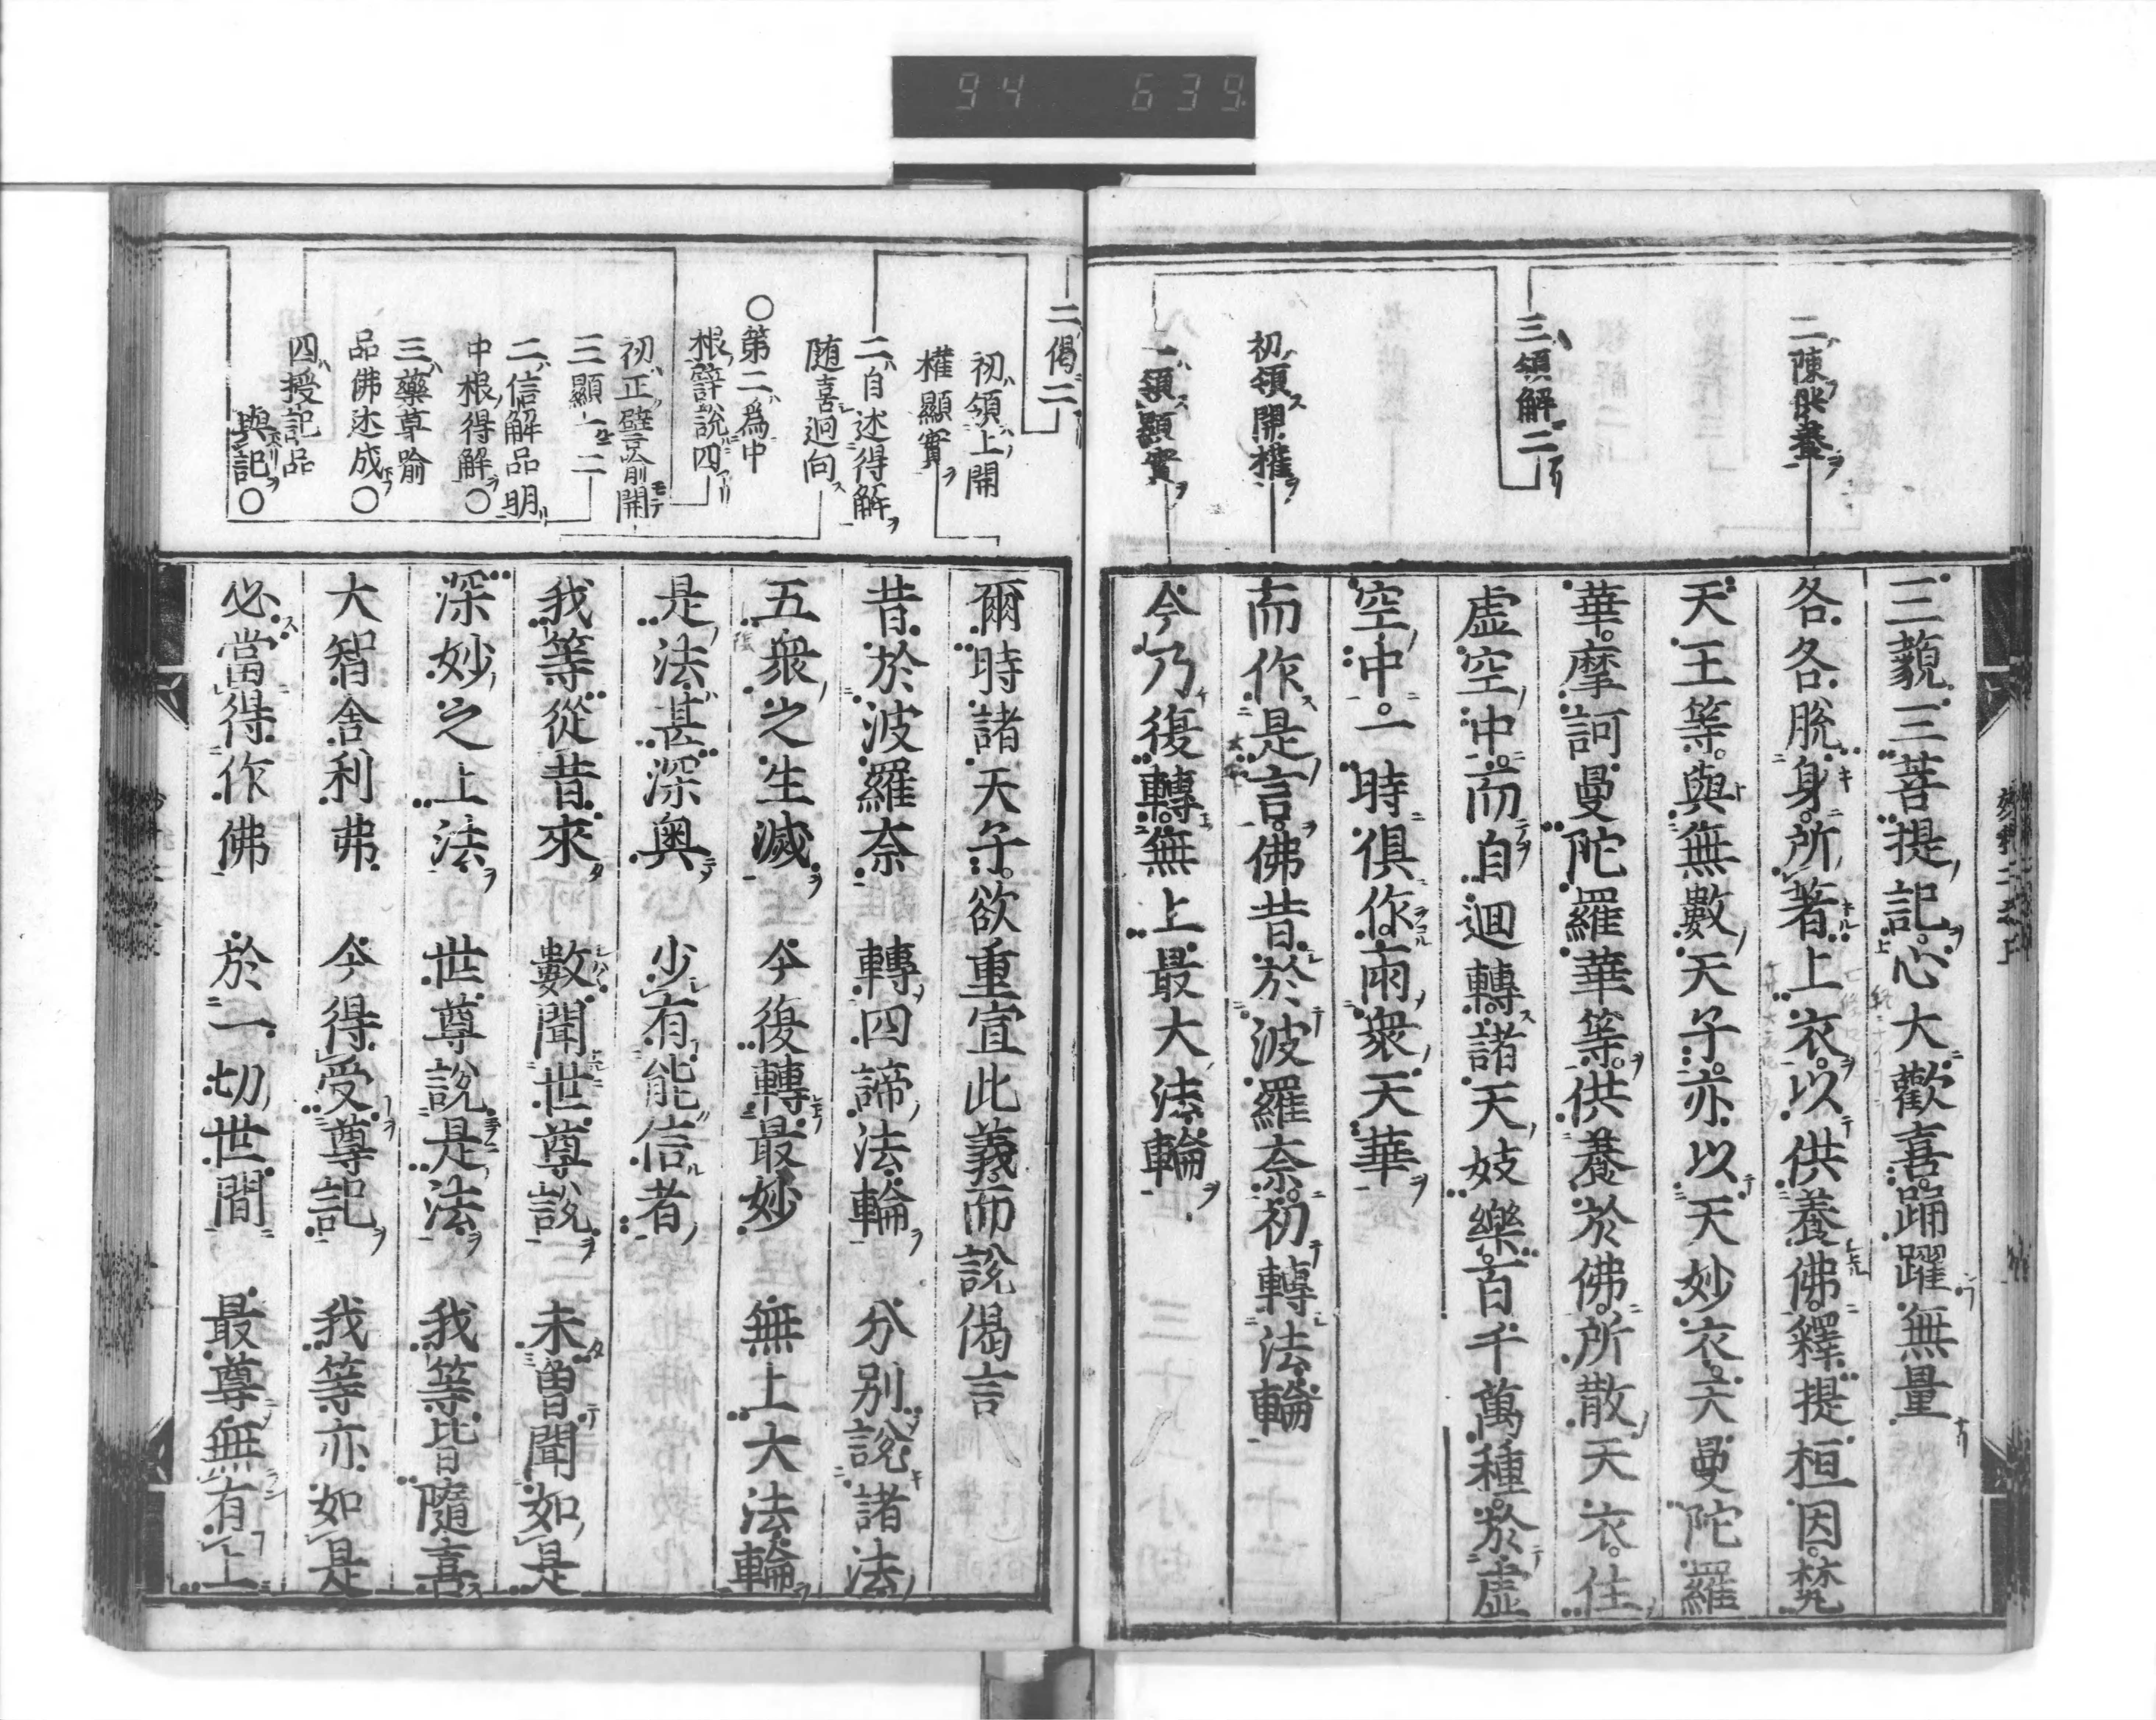 94 639
二陳供養
三領解二
初領開權
二領顯實
三藐三菩提記心大歡喜踊躍無量
各各脫身所著上衣以供養佛釋提桓因梵
天王等與無數天子亦以天妙衣天曼陀羅
華摩訶曼陀羅華等供養於佛所散天衣住
虛空中而自迴轉諸天妓樂百千萬種於虛
空中一時俱作雨衆天華
而作是言佛昔於波羅奈初轉法輪
今乃復轉無上最大法輪
二偈二
初領上開
權顯實
二自述得解
随喜迴向
○第二爲中
根譬説四
初正譬喻開
三顯一二
二信解品明
中根得解○
三藥草喻
品佛述成○
四授記品
與記○
爾時諸天子欲重宣此義而說偈言
昔於波羅奈 轉四諦法輪 分別說諸法
五衆之生滅 今復轉最妙 無上大法輪
是法甚深奥 少有能信者
我等從昔來 數聞世尊說 未曽聞如是
深妙之上法 世尊說是法 我等皆隨喜
大智舍利弗 今得受尊記 我等亦如是
必當得作佛 於一切世間 最尊無有上